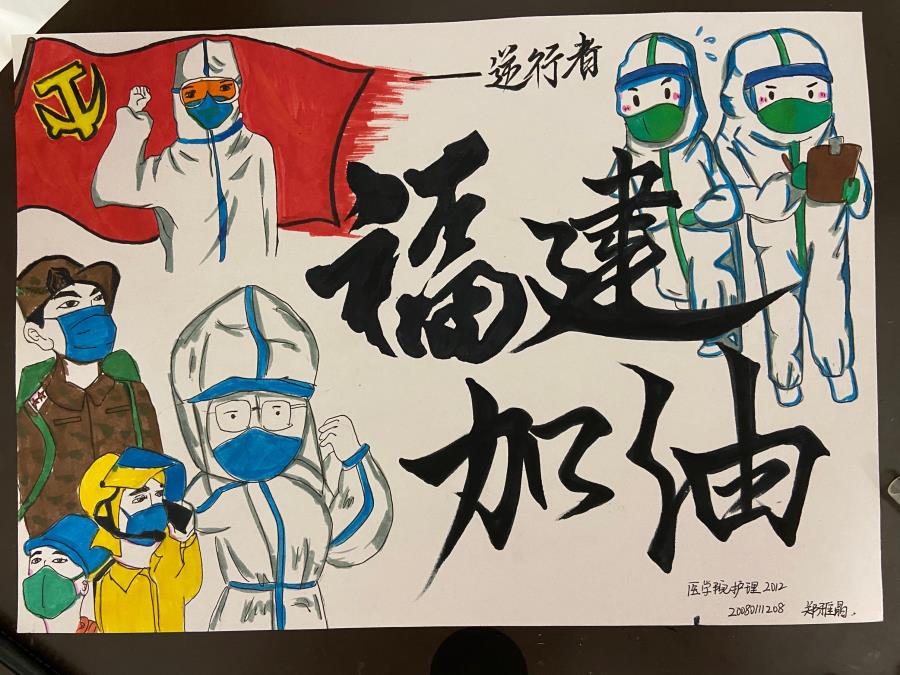 ——逆行者
福建
加油
医学院护理2012
20080111208 郑雅晶.